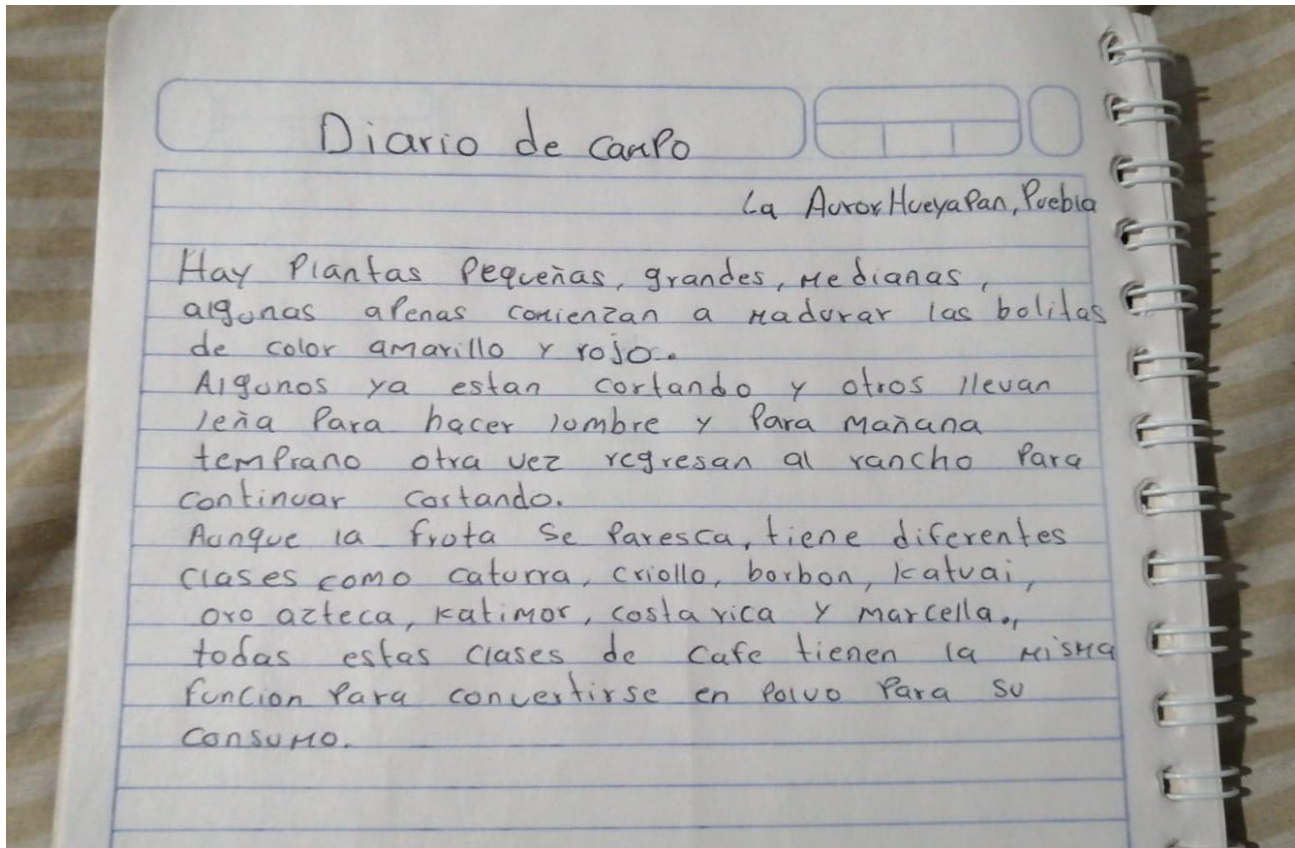 Diario de campo
La Auror Hueyapan, Puebla
Hay Plantas Pequeñas, grandes, Medianas,
algunas apenas comienzan a madurar las bolitas
de color amarillo y rojo.
Algunos ya estan cortando y otros llevan
leña Para hacer lumbre y Para mañana
temprano otra vez regresan al rancho Para
continuar cortando.
Aunque la fruta se Paresca, tiene diferentes
clases como caturra, criollo, borbon, katuai,
oro azteca, katimor, costa rica y marcella.,
todas estas clases de cafe tienen la misma
funcion Para convertirse en Polvo Para su
consumo.